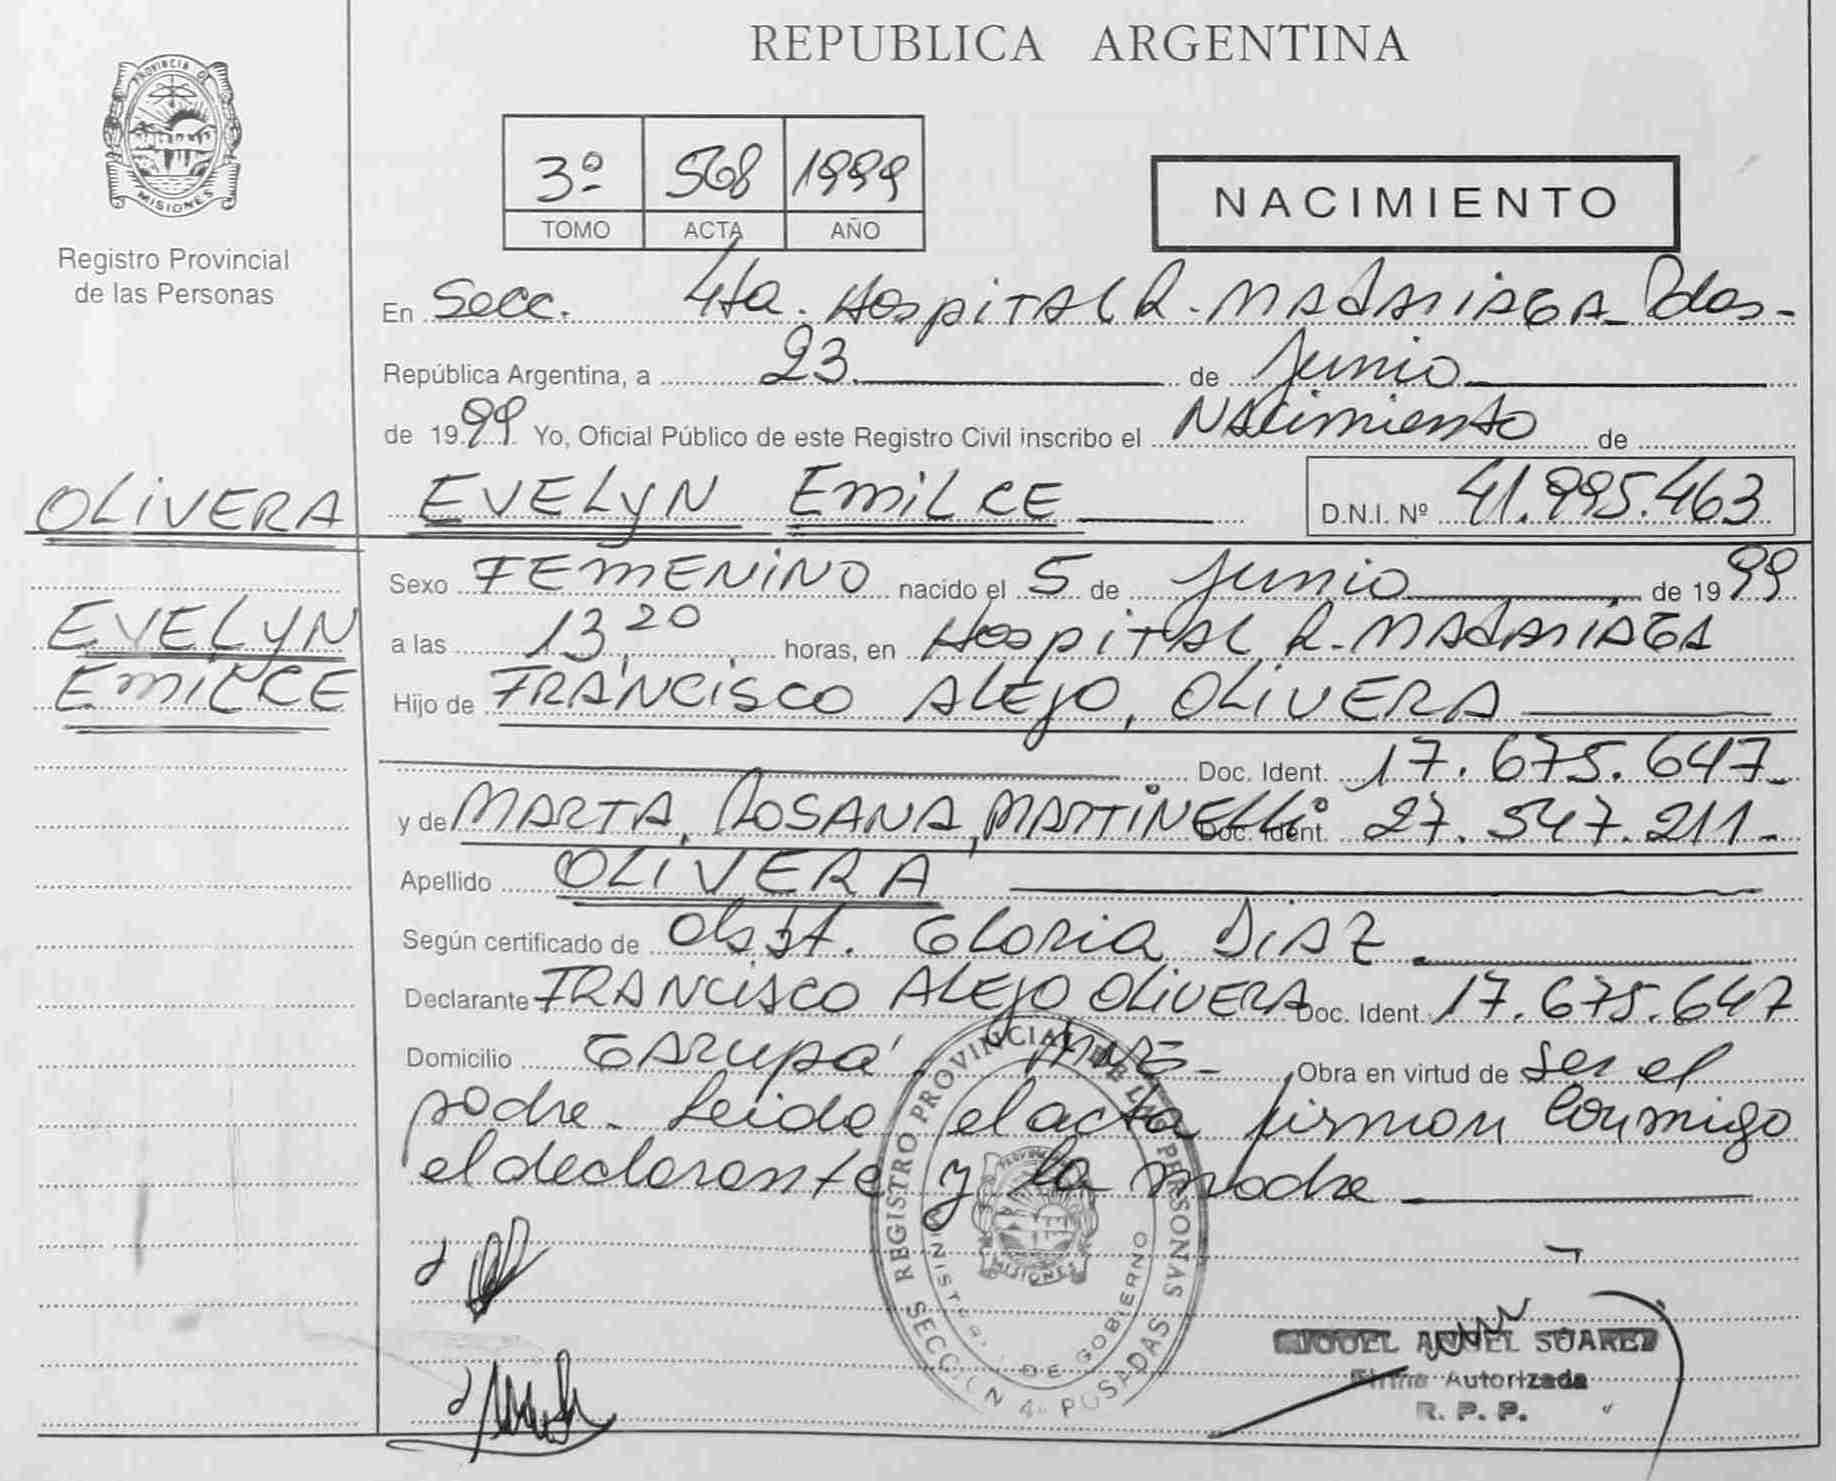 REPUBLICA ARGENTINA
PROVINCIA D
MISIONES
Registro Provincial
de las Personas
3º 568 1999
TOMO ACTA AÑO
NACIMIENTO
En Secc. 4ta. Hospital R. MADARIAGA - Pdas -
República Argentina, a 23 de Junio
de 1999 Yo, Oficial Público de este Registro Civil inscribo el Nacimiento de
OLIVERA EVELYN EMILCE D.N.I. Nº 41.995.463
EVELYN
EMILCE
Sexo FEMENINO nacido el 5 de Junio de 1999
a las 13,20 horas, en Hospital R. MADARIAGA
Hijo de FRANCISCO ALEJO, OLIVERA
Doc. Ident. 17.675.647-
y de MARTA, ROSANA, MARTINELLI Doc. Ident. 27.547.211-
Apellido OLIVERA
Según certificado de Obst. Gloria DIAZ
Declarante FRANCISCO ALEJO OLIVERA Doc. Ident. 17.675.647
Domicilio GARUPA, Mnes - Obra en virtud de ser el
padre - Leida el acta firman conmigo
el declarante y la madre
REGISTRO PROVINCIAL DE LAS PERSONAS
MINISTERIO DE GOBIERNO
MISIONES
SECCION 4a POSADAS
MIGUEL ANGEL SUAREZ
Firma Autorizada
R. P. P.